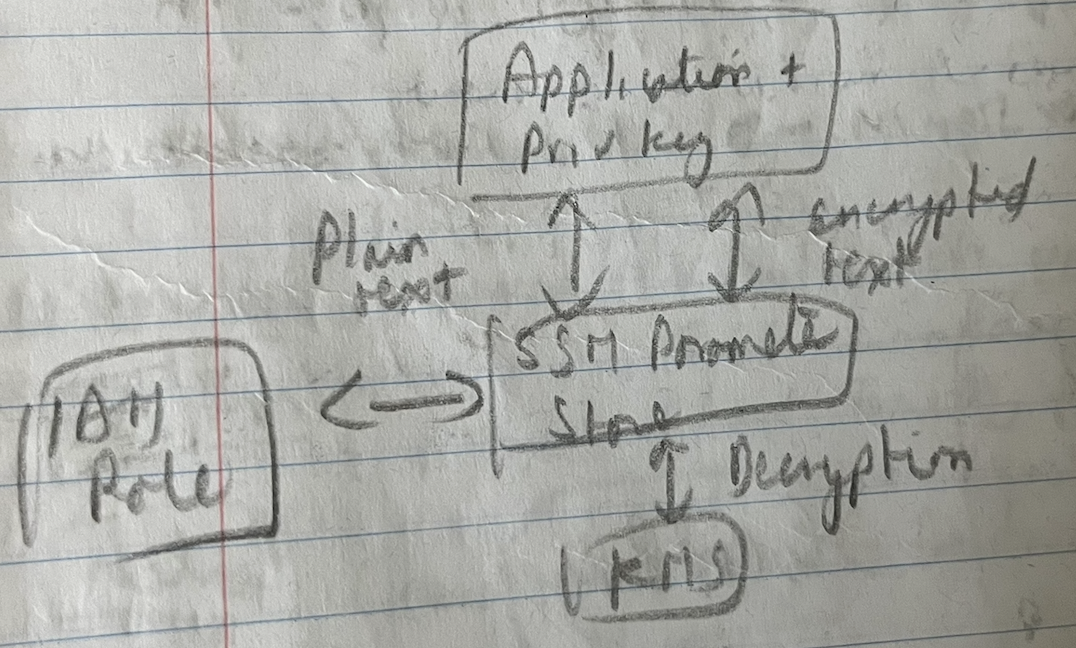 Application +
Priv key
Plain
text
encrypted
text
SSM
Store
IAM
Role
Decryption
KMS